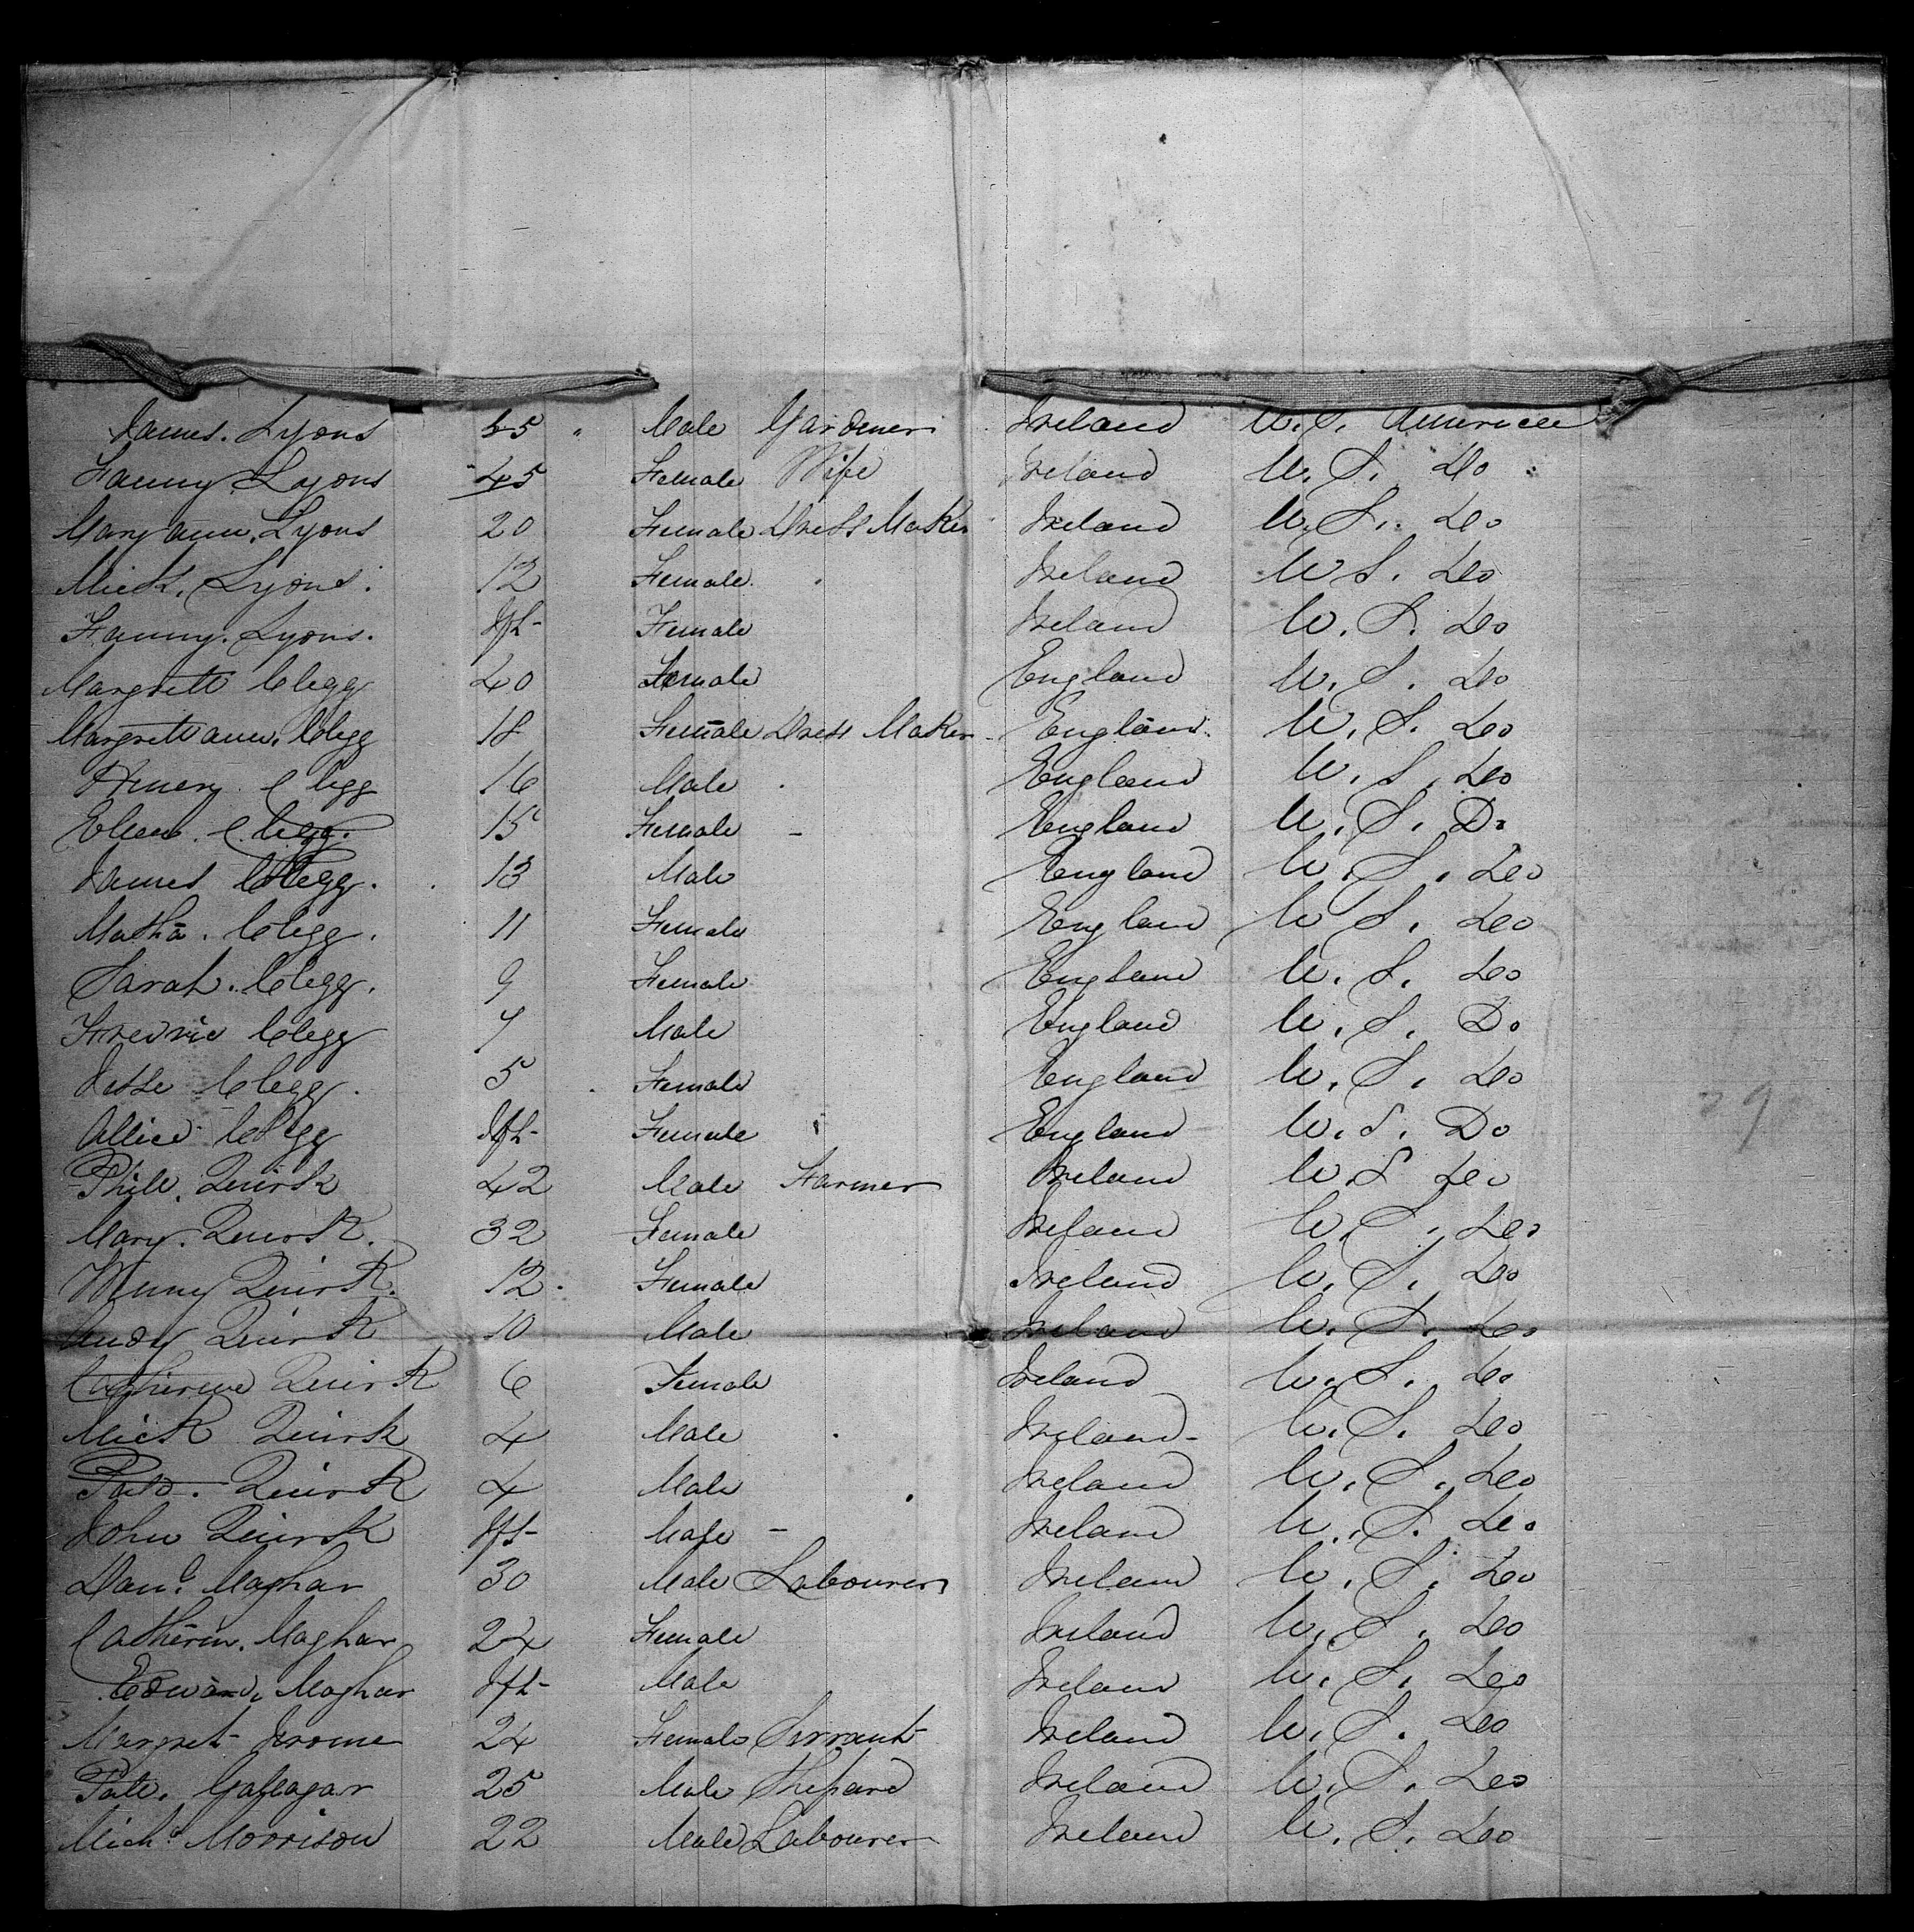 James. Lyons 45 " Male Gardener Ireland U.S. America
Fanny Lyons 45 Female Wife Ireland U.S. Do
Mary ann. Lyons 20 Female Dress Maker Ireland U.S. Do
Mick. Lyons. 12 Female Ireland U S. Do
Fanny. Lyons. Inft Female Ireland U.S. Do
Margrett Clegg 40 Female England U.S. Do
Margrett ann. Clegg 18 Female Dress Maker England U.S. Do
Henery Clegg 16 Male England U.S. Do
Ellen. Clegg. 15 Female - England U.S. Do
James Clegg. 13 Male England U.S. Do
Matha. Clegg. 11 Female England U S. Do
Sarah. Clegg. 9 Female England U.S. Do
Fredric Clegg 7 Male England U.S. Do
Jesse Clegg. 5 Female England U.S. Do
Allice Clegg Inft Female England U.S. Do
Phill. Quirk 42 Male Farmer Ireland U.S Do
Mary. Quirk. 32 Female Ireland U.S. Do
Winny Quirk. 12. Female Ireland U.S. Do
Andy Quirk 10 Male Ireland U.S. Do
Catherine Quirk 6 Female Ireland U.S. Do
Mick Quirk 4 Male Ireland U.S. Do
Patd. Quirk 4 Male Ireland U.S. Do
John Quirk Inft Male - Ireland U.S. Do
Danl. Maghar 30 Male Labourer Ireland U.S. Do
Catherin. Maghar 24 Female Ireland U.S. Do
Edward. Maghar Inft Male Ireland U.S. Do
Margret Jrome 24 Female Servant Ireland U.S. Do
Patt. Gallagar 25 Male Shepard Ireland U.S. Do
Michl Morrison 22 Male Labourer Ireland U.S. Do
29